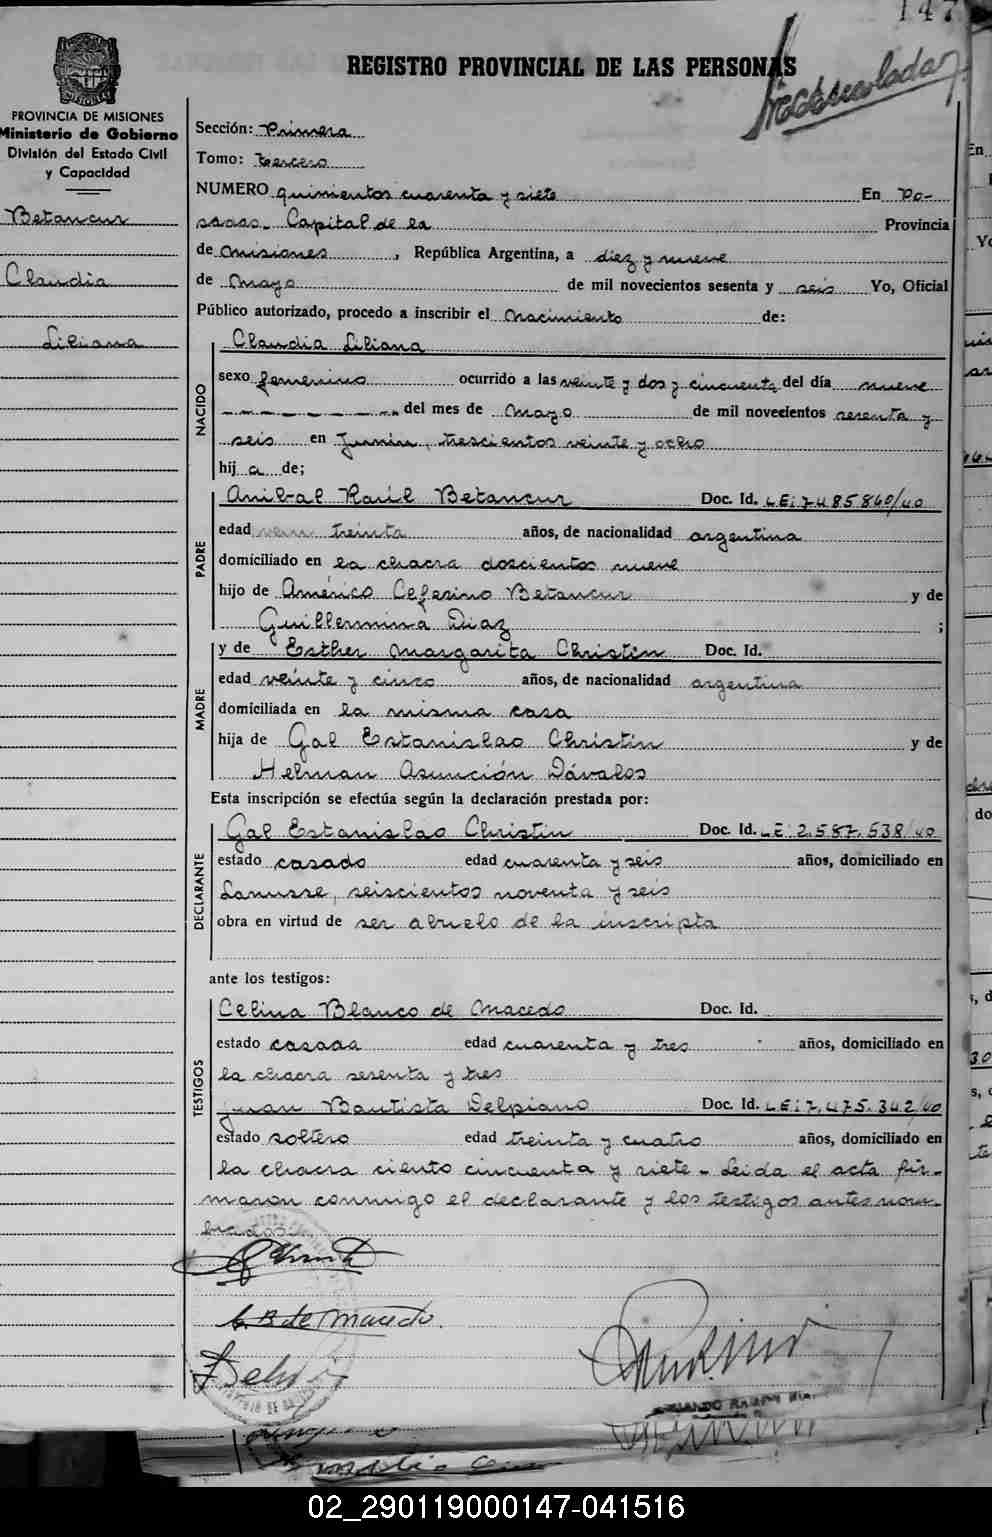 147
PROVINCIA DE MISIONES
Ministerio de Gobierno
División del Estado Civil
y Capacidad
Betancur
Claudia
Liliana
REGISTRO PROVINCIAL DE LAS PERSONAS
Sección: Primera
Tomo: tercero
NUMERO quinientos cuarenta y siete En Po-
sadas. Capital de la Provincia
de Misiones, República Argentina, a diez y nueve
de Mayo de mil novecientos sesenta y seis Yo, Oficial
Público autorizado, procedo a inscribir el Nacimiento de:
NACIDO
Claudia Liliana
sexo femenino ocurrido a las veinte y dos y cincuenta del día nueve
del mes de Mayo de mil novecientos sesenta y
seis en Junín, trescientos veinte y ocho
hij a de;
PADRE
Anibal Raúl Betancur Doc. Id. LE: 7485860/40
edad treinta años, de nacionalidad argentina
domiciliado en la chacra doscientos nueve
hijo de Américo Ceferino Betancur y de
Guillermina Diaz ;
MADRE
y de Esther Margarita Christin Doc. Id.
edad veinte y cinco años, de nacionalidad argentina
domiciliada en la misma casa
hija de Gal Estanislao Christin y de
Helman Asunción Dávalos
Esta inscripción se efectúa según la declaración prestada por:
DECLARANTE
Gal Estanislao Christin Doc. Id. LE: 2.587.538/40
estado casado edad cuarenta y seis años, domiciliado en
Lanusse, seiscientos noventa y seis
obra en virtud de ser abuelo de la inscripta
ante los testigos:
TESTIGOS
Celina Blanco de Macedo Doc. Id.
estado casada edad cuarenta y tres años, domiciliado en
la chacra sesenta y tres
Juan Bautista Delpiano Doc. Id. LE: 7.475.342/40
estado soltero edad treinta y cuatro años, domiciliado en
la chacra ciento cincuenta y siete. Leida el acta fir-
maron conmigo el declarante y los testigos antes nom-
brados
C. B de Macedo.
02_290119000147-041516